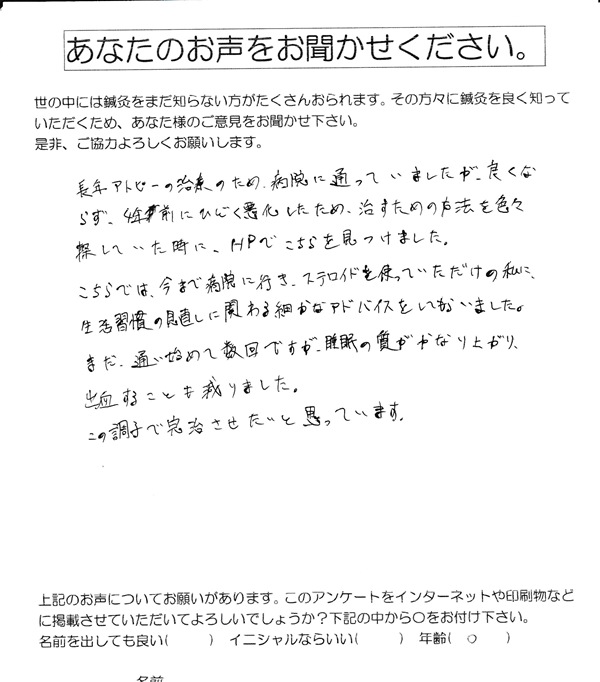 あなたのお声をお聞かせください。
世の中には鍼灸をまだ知らない方がたくさんおられます。その方々に鍼灸を良く知って
いただくため、あなた様のご意見をお聞かせ下さい。
是非、ご協力よろしくお願いします。
長年アトピーの治療のため、病院に通っていましたが、良くな
らず、4年前にひどく悪化したため、治すための方法を色々
探していた時に、HPでこちらを見つけました。
こちらでは、今まで病院に行き、ステロイドを使っていただけの私に、
生活習慣の見直しに関わる細かなアドバイスをしてもらいました。
まだ、通い始めて数回ですが、睡眠の質がかなり上がり、
出血することも減りました。
この調子で完治させたいと思っています。
上記のお声についてお願いがあります。このアンケートをインターネットや印刷物など
に掲載させていただいてよろしいでしょうか？下記の中から〇をお付け下さい。
名前を出しても良い( ) イニシャルならいい( ) 年齢( ○ )
名前